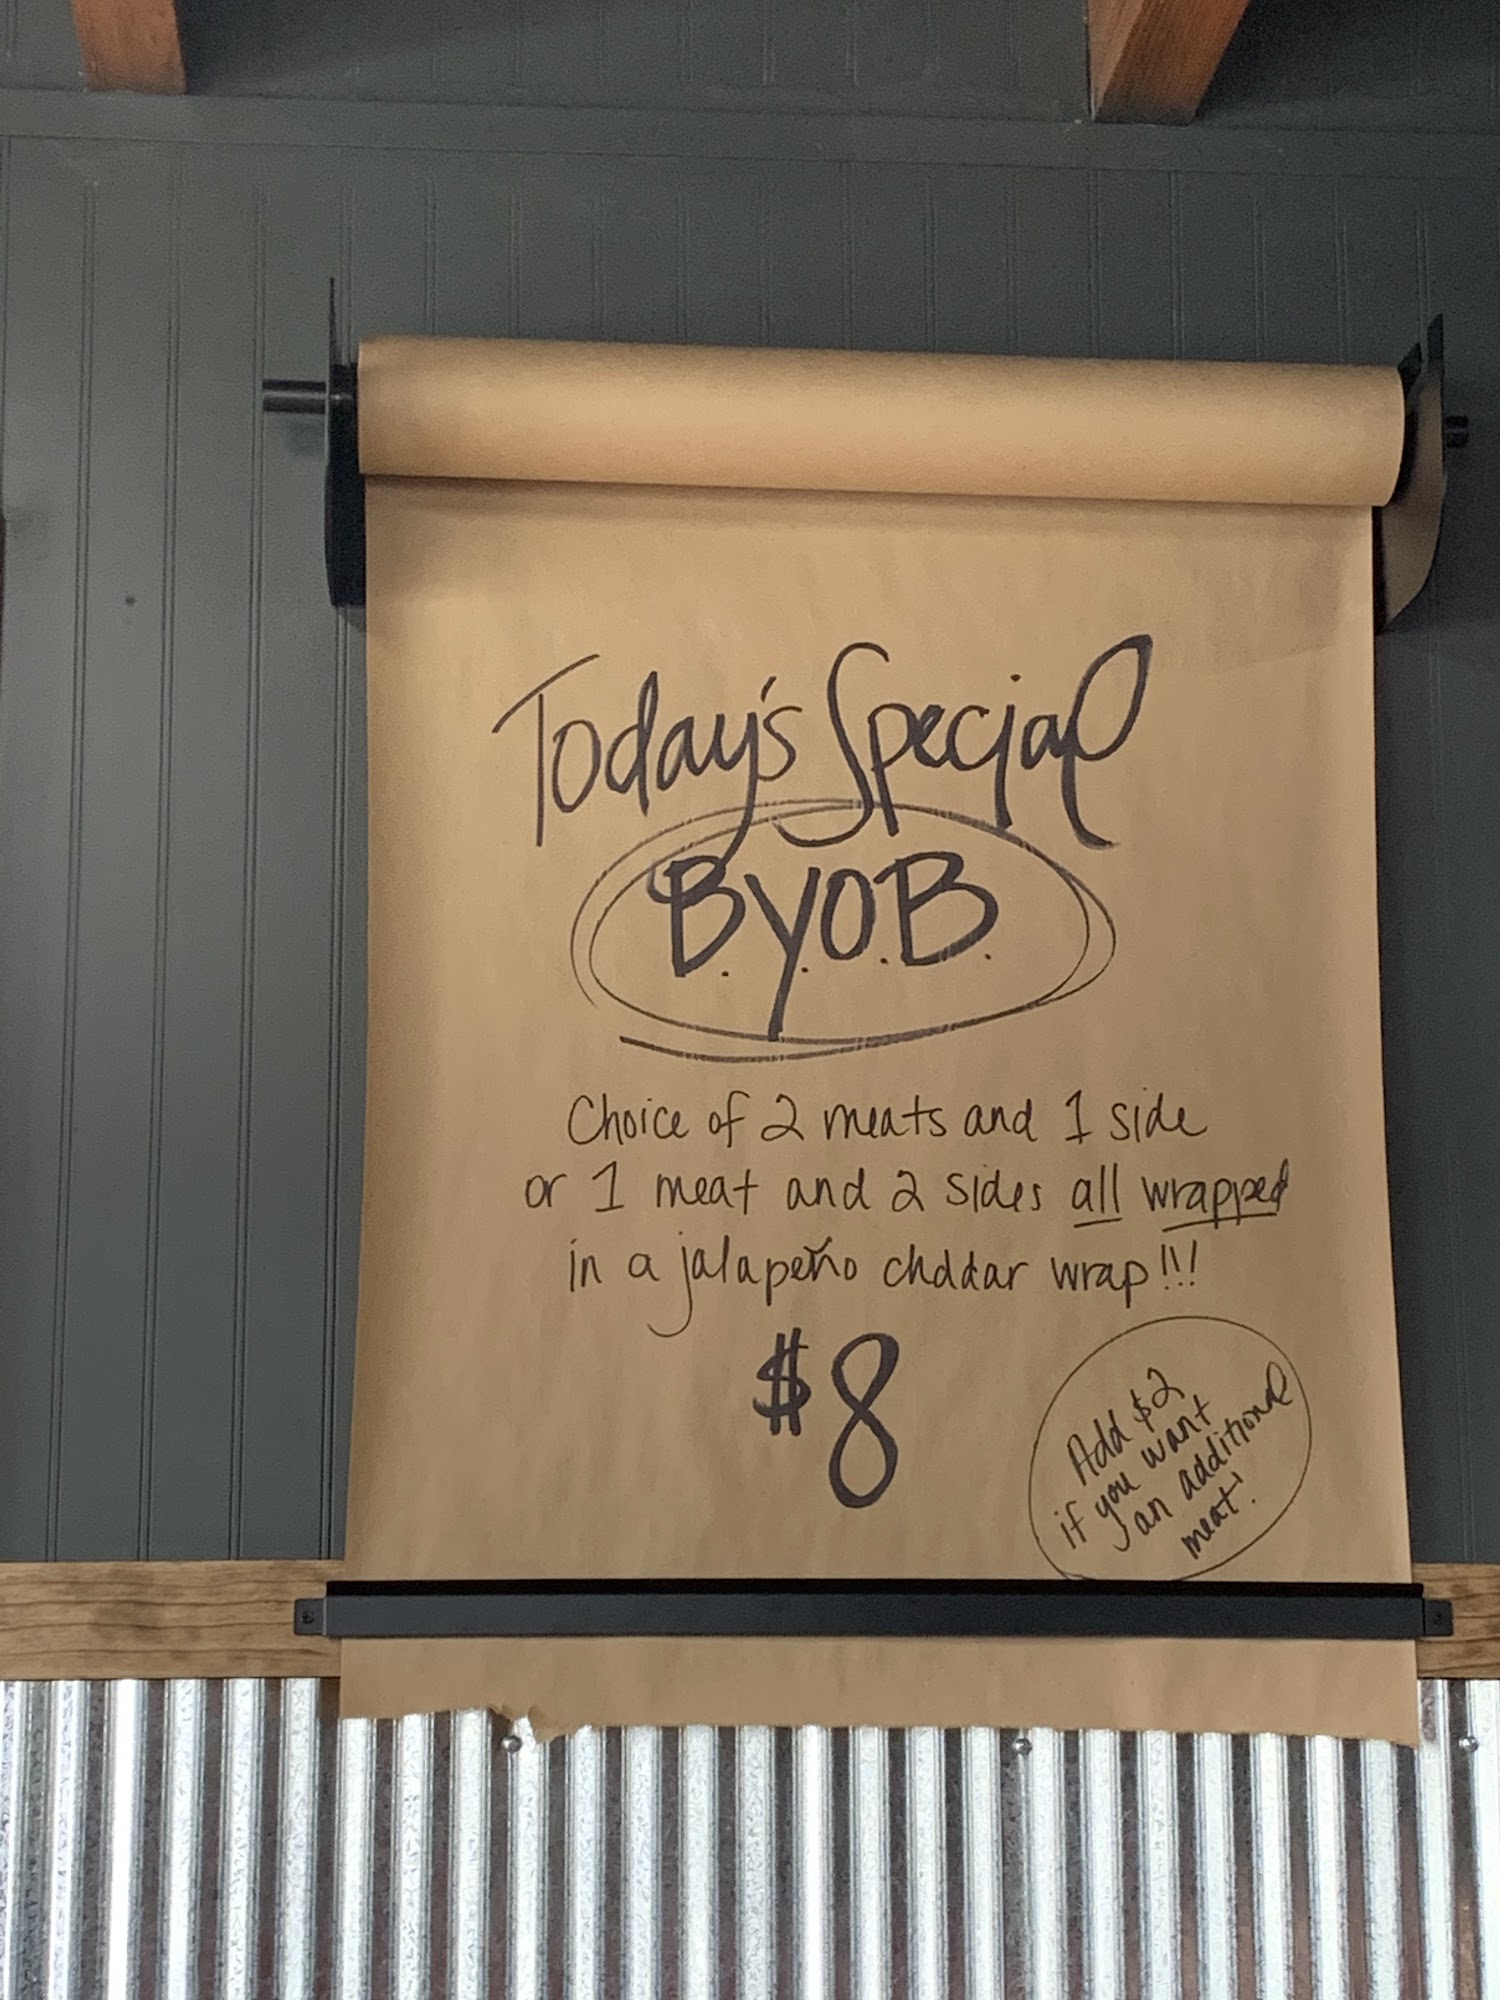 Today's Special
B.Y.O.B.
Choice of 2 meats and 1 side
or 1 meat and 2 sides all wrapped
in a jalapeño chddar wrap!!!
$8
Add $2
if you want
an additional
meat!